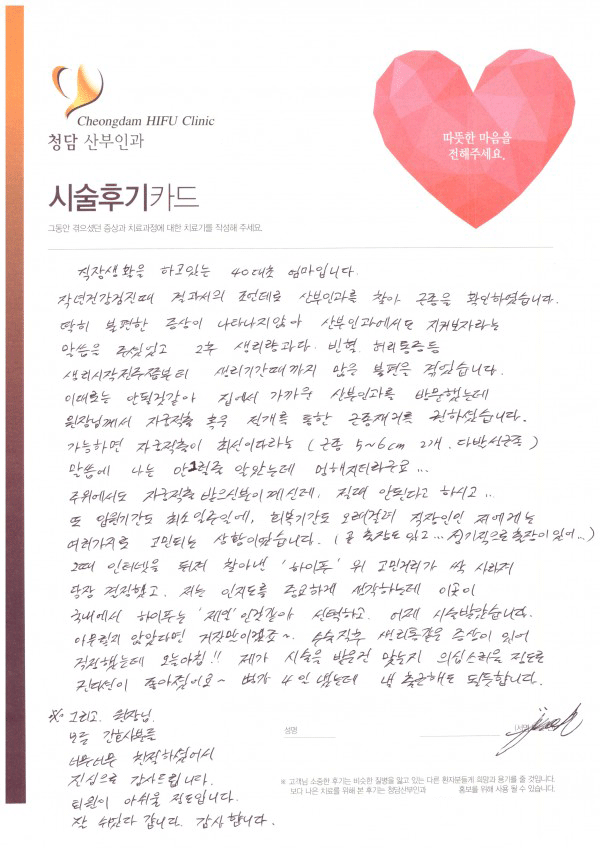 Cheongdam HIFU Clinic
청담 산부인과
따뜻한 마음을
전해주세요.
시술후기카드
그동안 겪으셨던 증상과 치료과정에 대한 치료기를 작성해 주세요.
직장생활을 하고있는 40대초 엄마입니다.
작년건강검진때 결과서의 조언데로 산부인과를 찾아 근종을 확인하였습니다.
딱히 불편한 증상이 나타나지않아 산부인과에서도 지켜보자라는
말씀을 주셨었고 2후 생리량과다. 빈혈. 허리통증등
생리시작전주쯤부터 생리기간때까지 많은 불편을 겪었습니다.
이대로는 안될것같아 집에서 가까운 산부인과를 방문했는데
원장님께서 자궁적출 혹은 절개를 통한 근종제거를 권하셨습니다.
가능하면 자궁적출이 최선이다라는 (근종 5~6cm 2개. 다발성근종)
말씀에 나는 안그럴줄 알았는데 멍해지더라구요...
주위에서도 자궁적출 받으신분이 계신데, 절대 안된다고 하시고..
또 입원기간도 최소일주일에, 회복기간도 오래걸려 직장인인 저에게는
여러가지로 고민되는 상황이었습니다. (곧 출장도 있고... 정기적으로 출장이 있어...)
그때 인터넷을 뒤져 찾아낸 '하이푸' 위 고민거리가 싹 사라져
당장 결정했고. 저는 인지도를 중요하게 생각하는데 이곳이
국내에서 하이푸는 '제일'인것같아 선택하고. 어제 시술받았습니다.
아무렇지 않았다면 거짓말이겠죠~. 수술직후 생리통같은 증상이 있어
걱정했는데 오늘아침!! 제가 시술을 받은건 맞는지 의심스러울 정도로
컨디션이 좋아졌어요~ 병가 4일 냈는데 낼 출근해도 될듯합니다.
※ 그리고. 원장님.
모든 간호사분들
너무너무 친절하셨어서
진심으로 감사드립니다.
퇴원이 아쉬울 정도입니다.
잘 쉬었다 갑니다. 감사합니다.
성명
(서명)
※ 고객님 소중한 후기는 비슷한 질병을 앓고 있는 다른 환자분들께 희망과 용기를 줄 것입니다.
보다 나은 치료를 위해 본 후기는 청담산부인과 홍보를 위해 사용 될 수 있습니다.